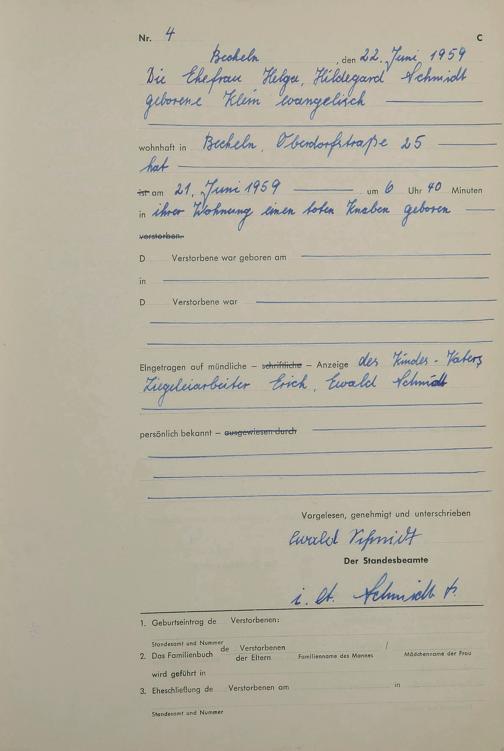 Nr. 4 C
Becheln, den 22. Juni 1959
Die Ehefrau Helga, Hildegard Schmidt
geborene Klein evangelisch
wohnhaft in Becheln, Oberdorfstraße 25
hat
ist am 21. Juni 1959 um 6 Uhr 40 Minuten
in ihrer Wohnung einen toten Knaben geboren
verstorben.
D Verstorbene war geboren am
in
D Verstorbene war
Eingetragen auf mündliche – schriftliche – Anzeige des Kindes-Vaters
Ziegeleiarbeiter Erich, Ewald Schmidt
persönlich bekannt – ausgewiesen durch
Vorgelesen, genehmigt und unterschrieben
Ewald Schmidt
Der Standesbeamte
Schmidt
1. Geburtseintrag de Verstorbenen:
Standesamt und Nummer
2. Das Familienbuch de Verstorbenen /
der Eltern Familienname des Mannes Mädchenname der Frau
wird geführt in
3. Eheschließung de Verstorbenen am in
Standesamt und Nummer